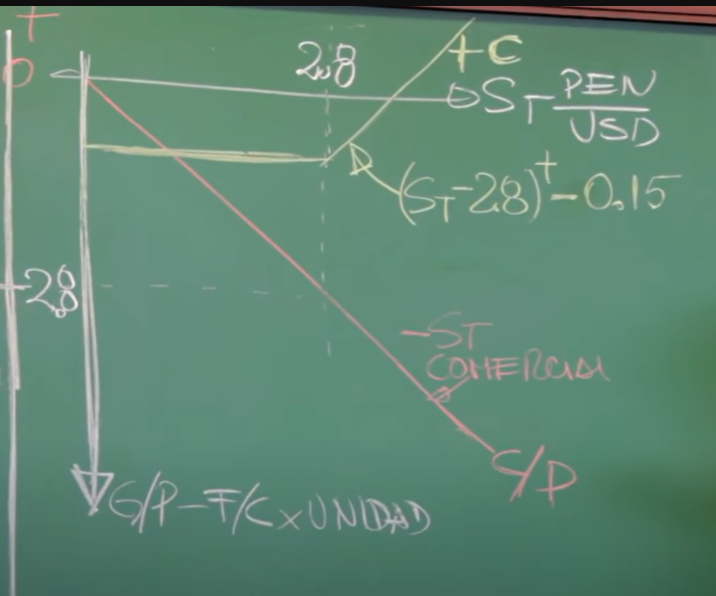 +
0
2.8
+C
ST PEN/USD
(ST-2.8)⁺-0.15
-2.8
-ST
COMERCIAL
C/D
G/P-F/C x UNIDAD